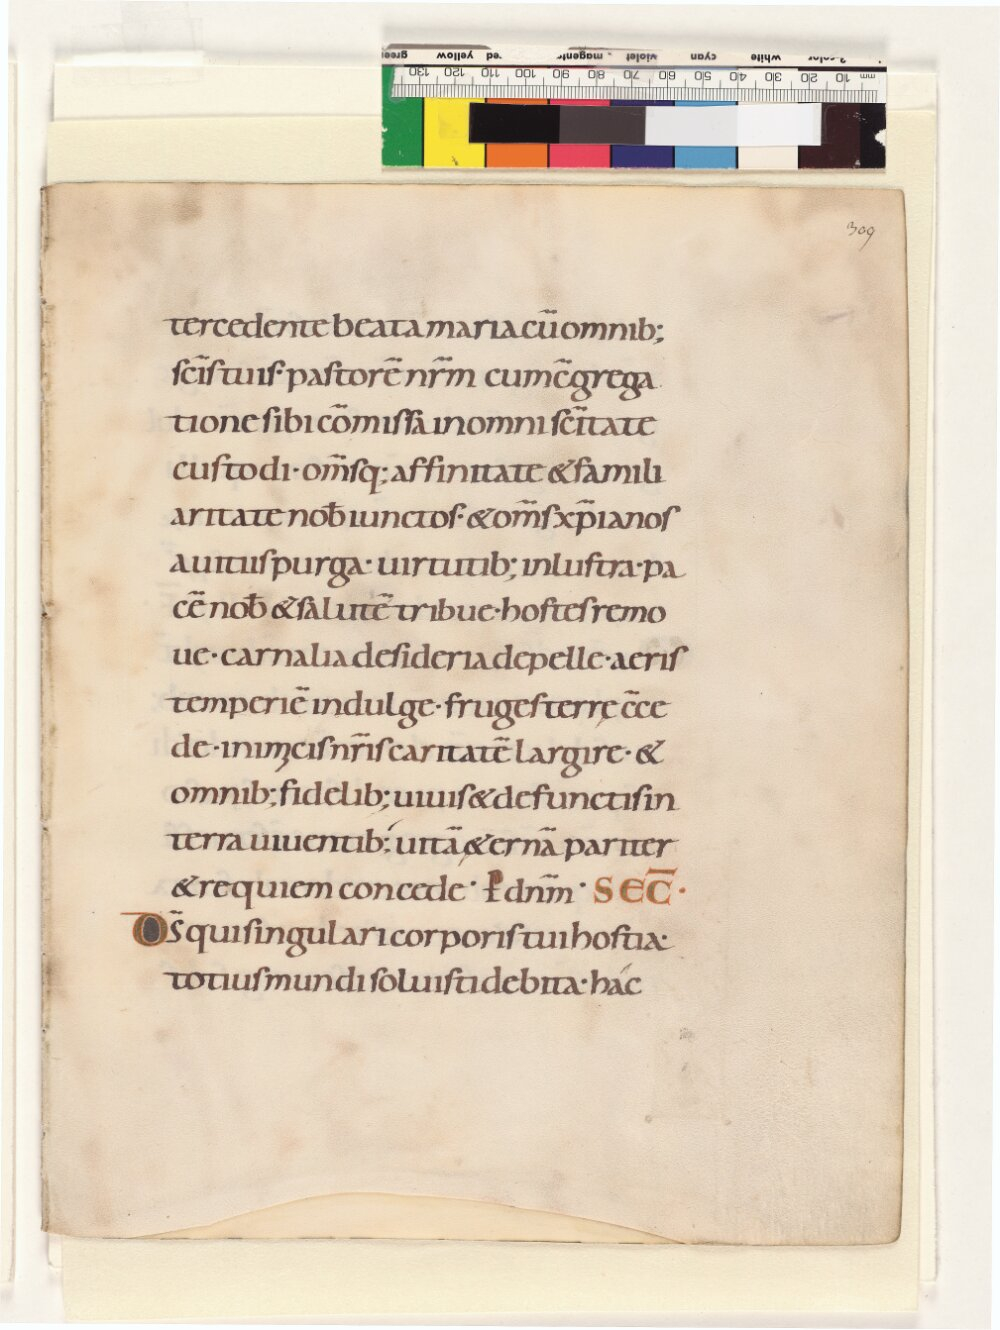 green yellow red magenta violet cyan white 3-color
130 120 110 100 90 80 70 60 50 40 30 20 10 mm
309
tercedente beata maria cū omnib;
sc̄is tuis· pastorē nr̄m cum c̄grega
tione sibi cōmissā in omni sc̄itate
custodi· om̄sq; affinitate & famili
aritate nob̄ iunctos· & om̄s xp̄ianos
a uitiis purga· uirtutib; inlustra· pa
cē nob̄ & salutē tribue· hostes remo
ue· carnalia desideria depelle· aeris
temperiē indulge· fruges terrę c̄ce
de· inimicis nr̄is caritatē largire· &
omnib; fidelib; uiuis & defunctis in
terra uiuentib; uitā &ernā pariter
& requiem concede· P dnm̄· SEC̄·
Ds̄ qui singulari corporis tui hostia·
totius mundi soluisti debita· hác